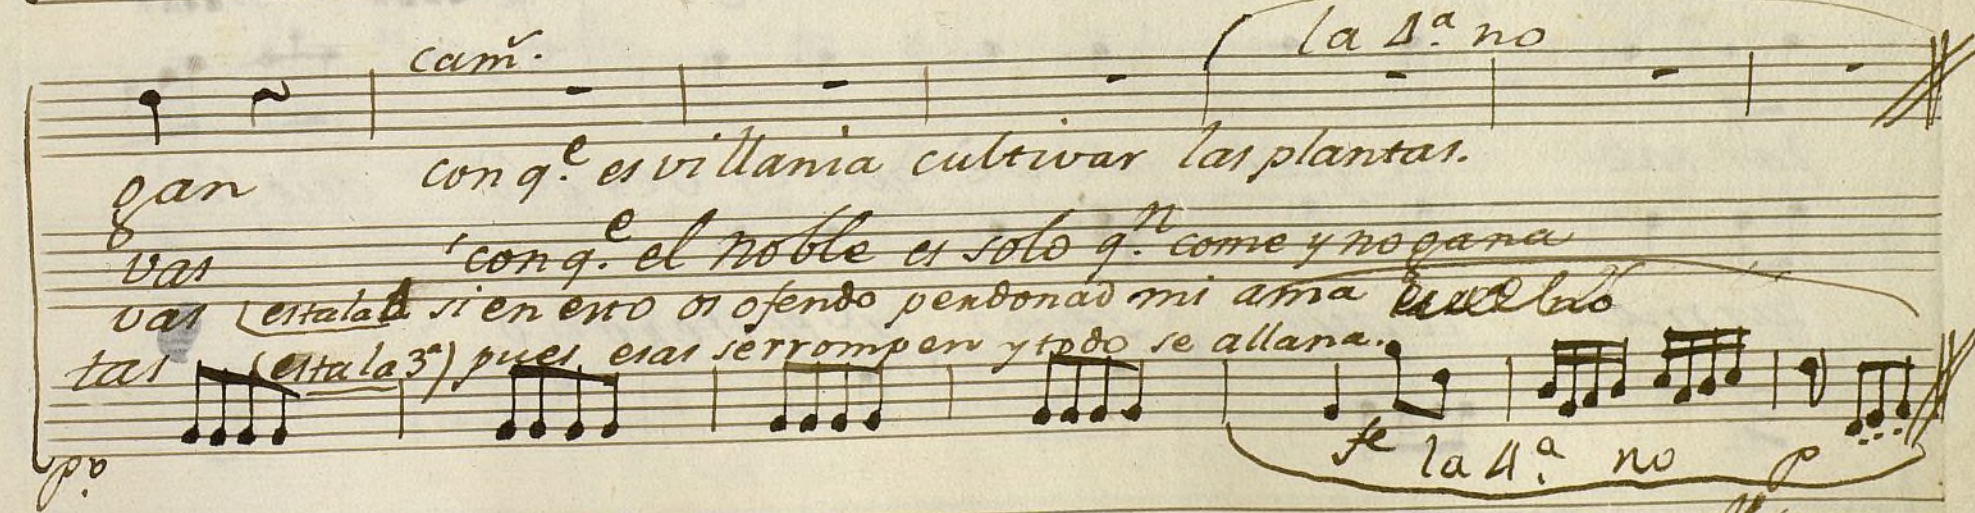 la 4.ª no
cam.
gan con q.e es villania cultivar las plantas.
vas con q.e el noble es solo q.n come y no gana
vas (esta la 4 si en esto os ofendo perdonad mi ama
tas (esta la 3ª) pues esas se rrompen y todo se allana.
fe
la 4.ª no p
pº